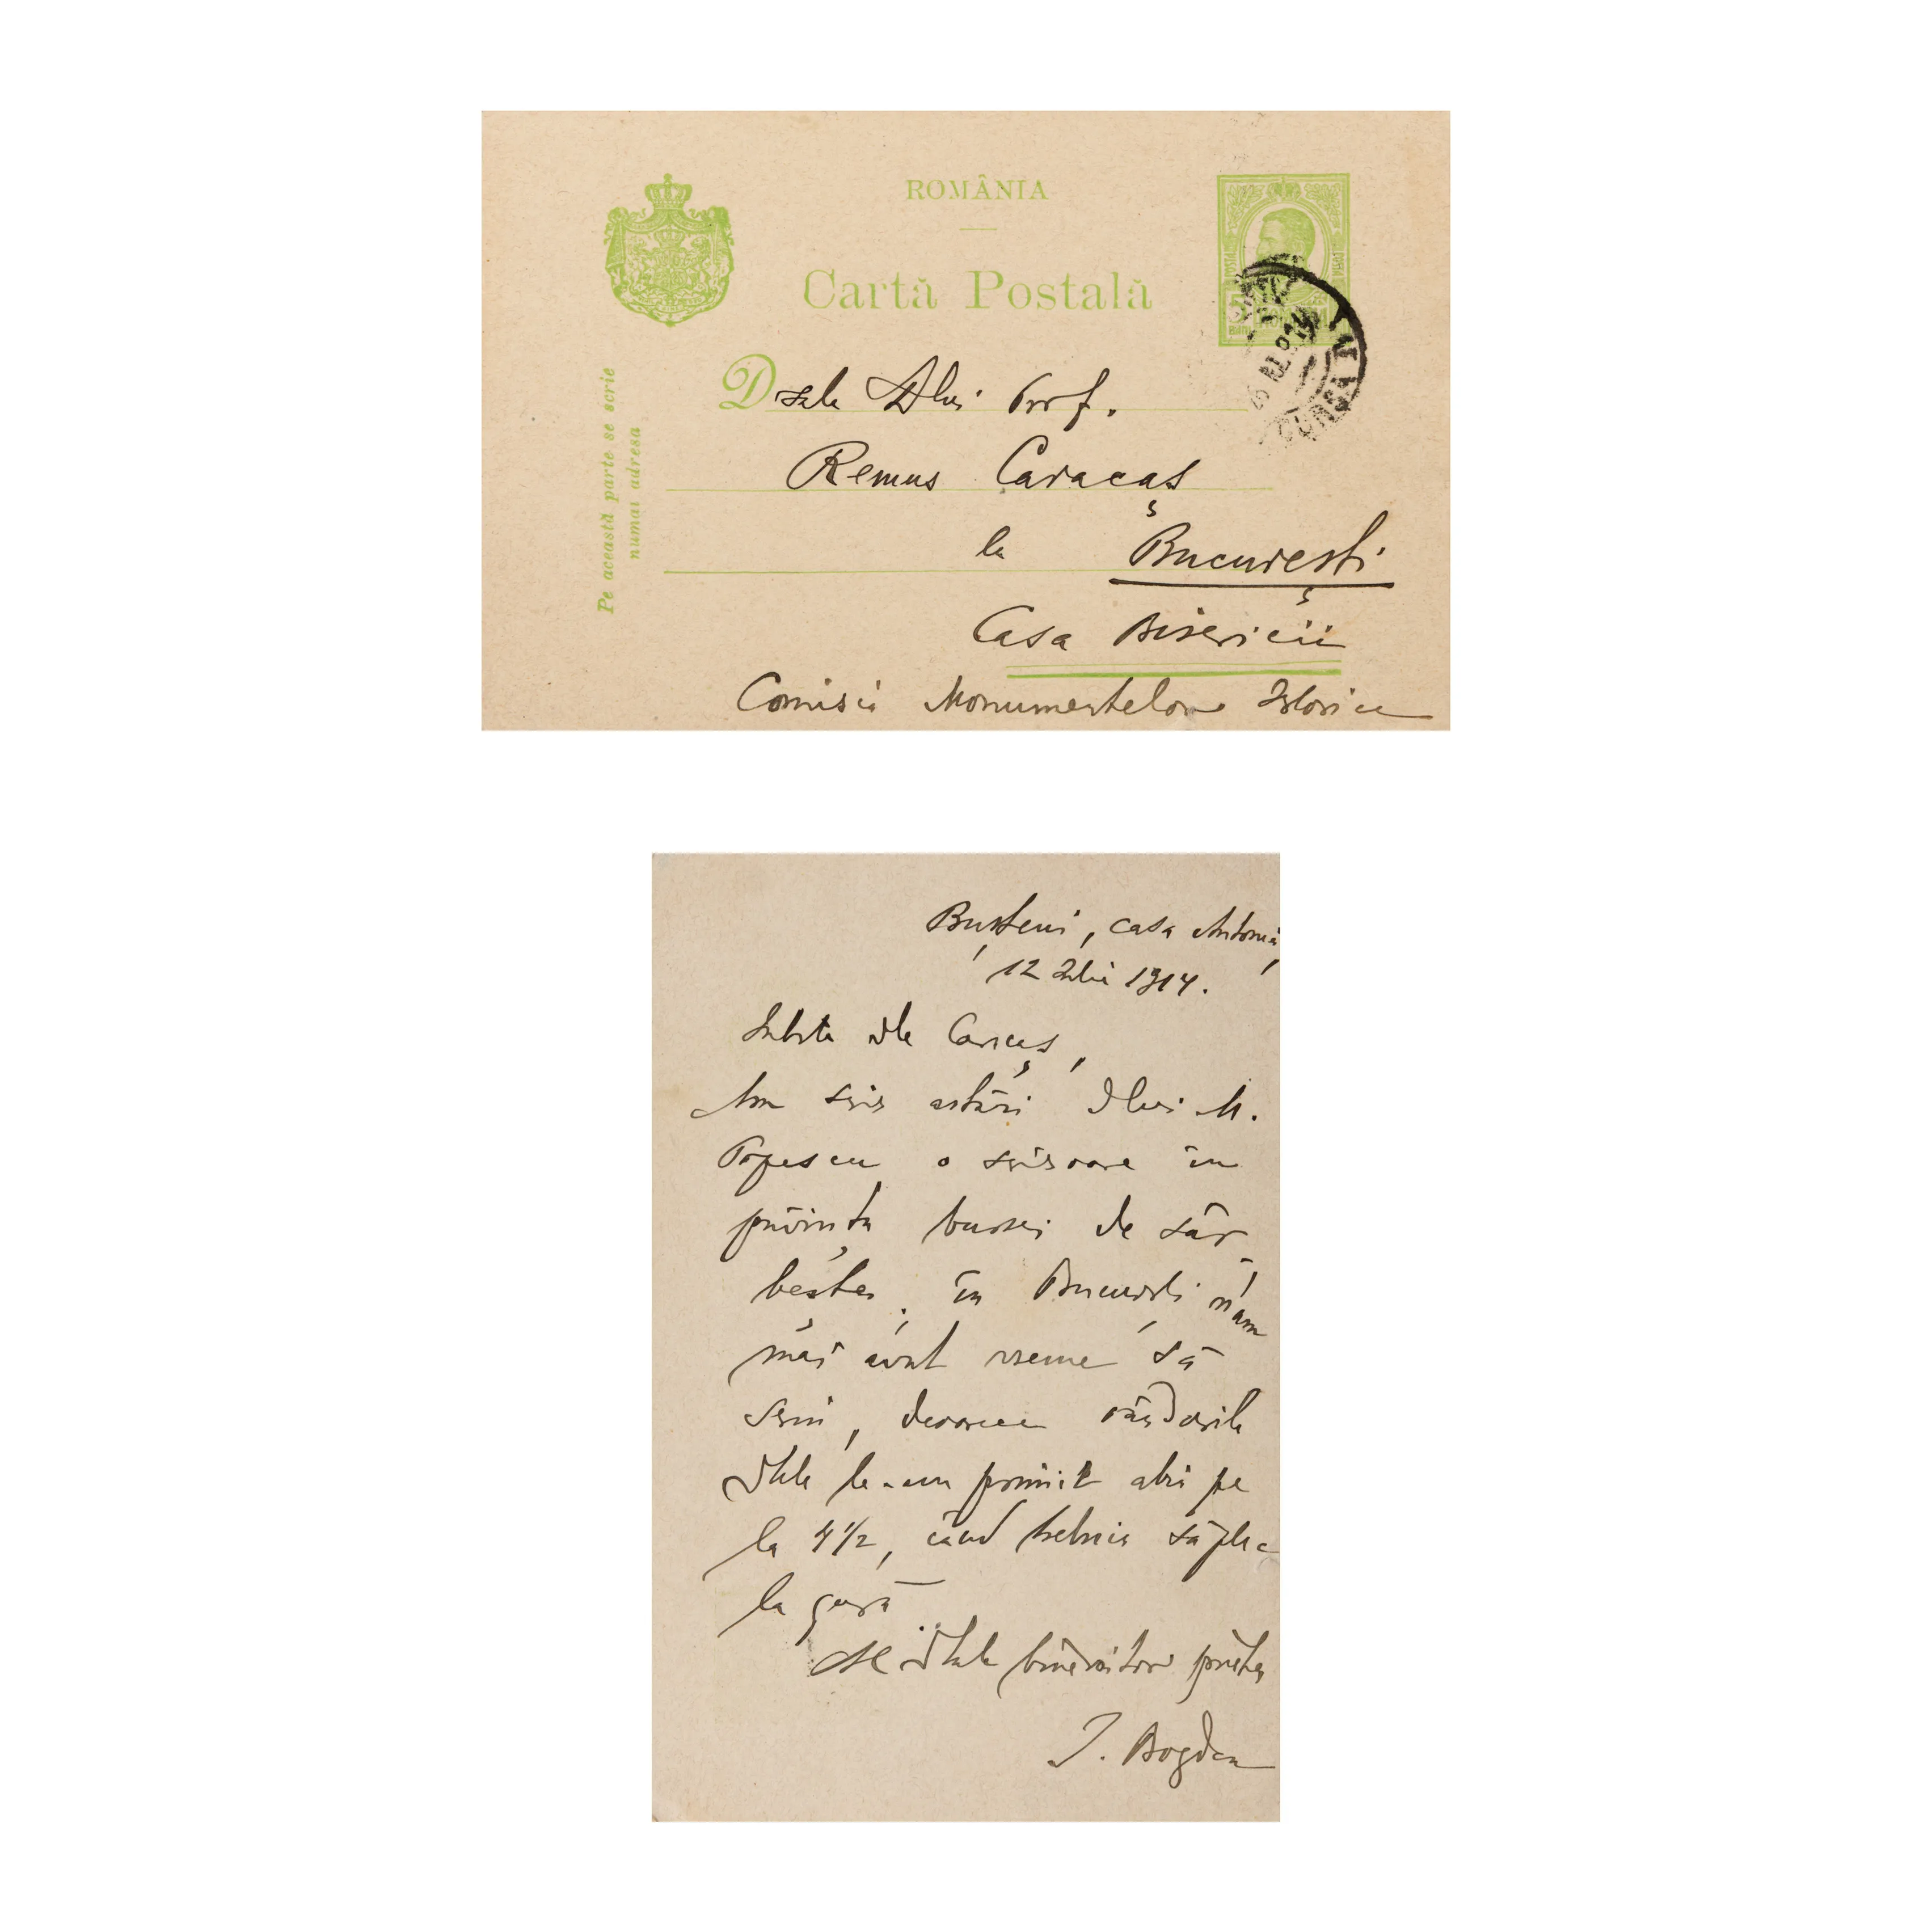 ROMÂNIA
Cartă Postală
5 BANI
Pe această parte se scrie
numai adresa
Dsale Dlui Prof.
Remus Caracaș
la București
Casa Bisericii
Comisia Monumentelor Istorice
Bușteni, casa Antoniu,
12 Iulie 1914.
Iubite dle Caracaș,
Am scris astăzi dlui M.
Popescu o scrisoare în
privința bursei de sâr-
bește; în București n'am
mai avut vreme să
scriu, deoarece rândurile
dtale le-am primit abia pe
la 4 1/2, când trebuia să plec
la gară
Al dtale binevoitor prieten
I. Bogdan